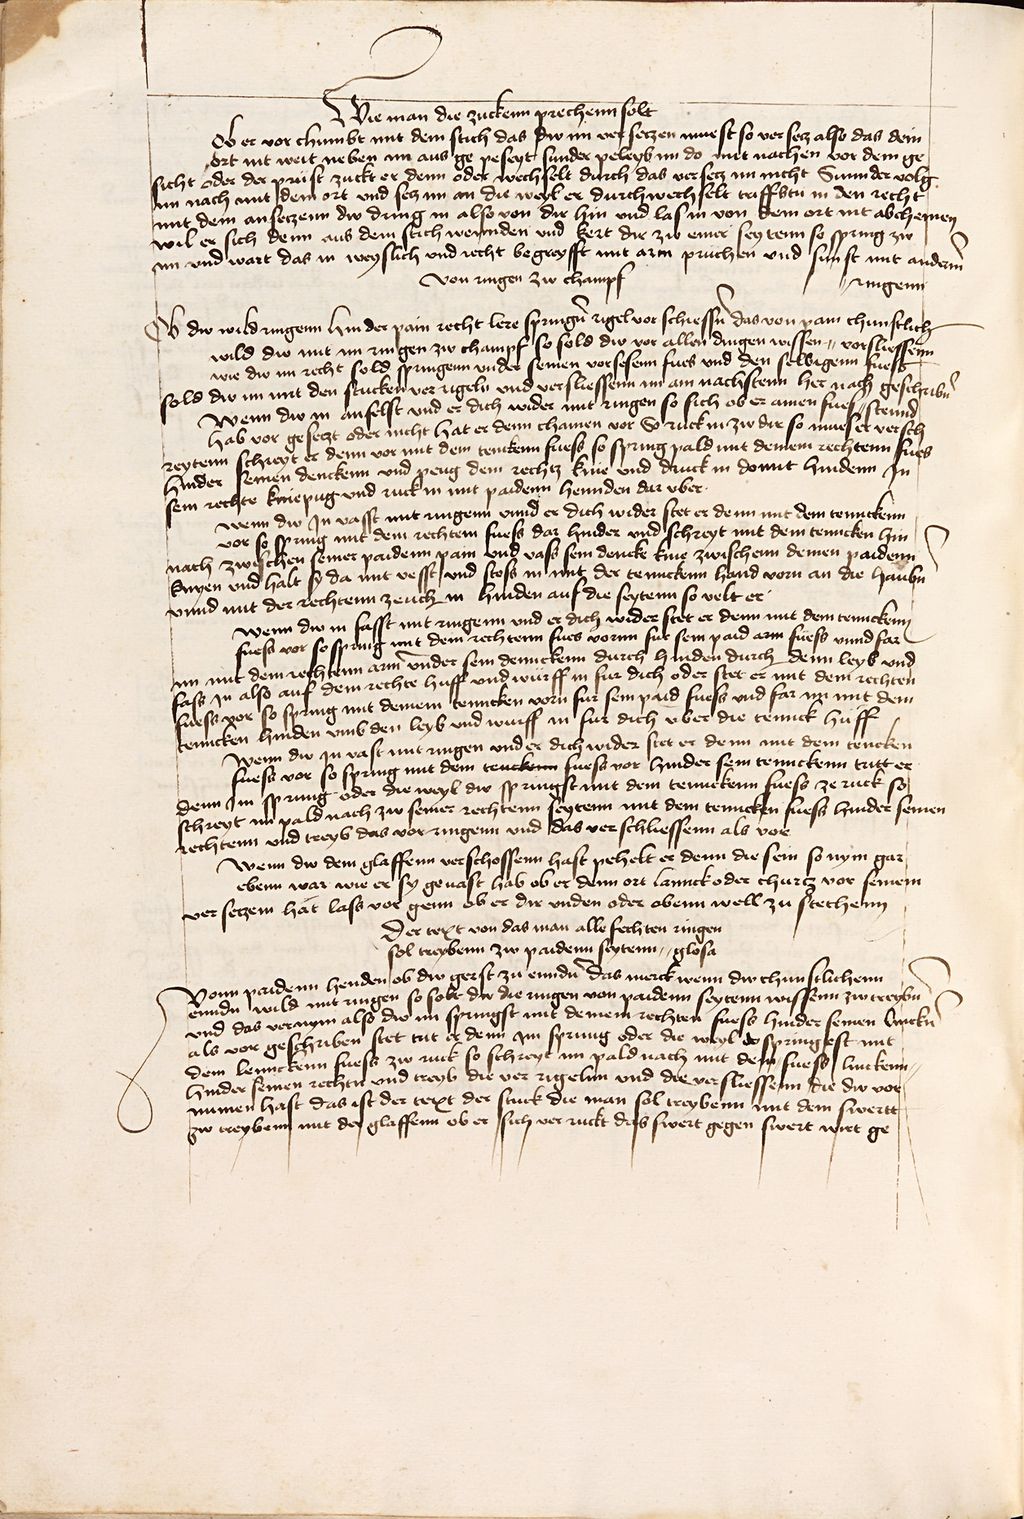 Wie man die zuckenn prechenn solt
Ob er vor chumbt mit dem stich das dw im ver setzen muest so ver setz also das dein
ort nit weit neben im aus ge peseyt sunder peleyb im do mit nachen vor dem ge
sicht oder der prüst zuckt er denn oder wechselt durch das versetz im nicht Sunnder volg
im nach mit dem ort und setz im an die weyl er durchwechselt triffstu in den recht
mit dem ansetzenn dw dring in also von dir hin und las in von dem ort nit abchemen
wil er sich denn aus dem stich wennden und kert dir zw einer seytenn so spring zw
im und wart das in weyslich und recht begreyfft mit arm prüchen und sunst mit anderm
Von ringen zw champf ringenn
Ob dw wild ringenn hinder pain recht lere springn rigel vor schiessn das von pam chunstlich
wild dw mit im ringen zw champf so sold dw vor allen dingen wissen vorsliessenn
wie dw im recht sold springenn under seinen vorsetzenn fues und den selbigenn fuess
sold dw im mit den stucken ver rigeln und versliessenn im am nachstenn her nach geschribn
Wenn dw in anfelst und er dich wider mit ringen so sich ob er ainen fues stennd
hab vor gesetzt oder nicht hat er denn chainen vor So ruck in zw dir so mues er versch
reytenn schreyt er denn vor mit dem tenckenn fuess so spring pald mit deinem rechtenn fues
hinder seinen denckenn und peug dem rechtz knie und druck in domit hindenn In
sein rechte kniepug und ruck in mit paidenn hennden dar uber
Wenn dw In vasst mit ringenn unnd er dich wider stet er denn mit dem tennckenn
vor so spring mit dem rechtenn fuess dar hinder und schreyt mit dem tenncken hin
nach zwischen seiner paidenn pain und vass sein dencke knie zwischenn deinen paidenn
knyen und halt sy da mit vesst und stoss in mit der tennckenn hand vorn an die haubn
unnd mit der rechtenn zeuch in hinden auf die seytenn so velt er
Wenn dw in fasst mit ringenn und er dich wider stet er denn mit dem tennckenn
fuess vor so spring mit dem rechtenn fues vornn fur sein paid arm fuess unnd far
im mit dem rechtenn arm under sein dennckenn durch hinden durch denn leyb und
fass In also auf dem rechte huff und würff in fur dich oder stet er mit dem rechten
fuess vor so spring mit deinem tenncken vorn fur sein paid fuess und far im mit dem
tenncken hinden umb den leyb und wurff in fur dich uber die tennck huff
Wenn dw In vast mit ringen und er dich wider stet er denn mit dem tencken
fuess vor so spring mit dem tenckenn fuess vor hinder sein tennckenn tritt er
denn Im sprung oder die weyl dw springst mit dem tennckenn fuess ze ruck so
schreyt im pald nach zw seiner rechtenn seytenn mit dem tenncken fuess hinder seinen
rechtenn und treyb das vor ringenn und das verschliessenn als vor
Wenn dw dem glaffenn verschossenn hast pehelt er denn die sein so nym gar
ebenn war wie er sy gevast hab ob er denn ort lannck oder churtz vor seinem
versetzenn hat lass vor genn ob er dir unden oder obenn well zu stechenn
Der text von das man alle fechten ringen
sol treybenn zw paidenn seytenn glosa
Vonn paidenn henden ob dw gerst zu enndn das merck wenn dw chunstlichenn
enndn wild mit ringen so solt dw die ringen von paidenn seytenn wissenn zw treybn
und das vernym also dw im springst mit deinem rechten fuess hinder seinen linckn
als vor geschriben stet trit er denn im sprung oder die weyl do springest mit
dem lennckenn fuess zw ruck so schreyt im pald nach mit dem fuess linckenn
hinder seinen rechtn und treyb die ver rigelnn und die versliessenn die dw vor
nunen hast das ist der text der stuck die man sol treybenn mit dem swertt
zw treybenn mit der glaffenn ob er sich ver ruckt das swert gegen swert wirt ge